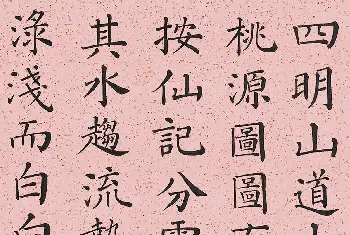 四明山道
桃源圖圖
按仙記分
其水趨流
淥淺而白